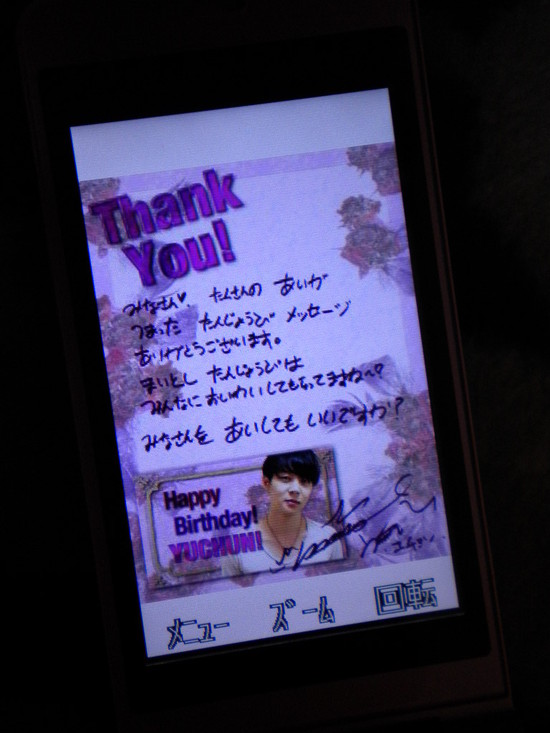 Thank
You!
みなさん♥、たくさんの あいが
つまった たんじょうび メッセージ
ありがとうございます。
まいとし たんじょうびは
みんなに おいわいしてもらってますね〜♡
みなさんを あいしても いいですか?
Happy
Birthday!
YUCHUN!
メニュー ズーム 回転